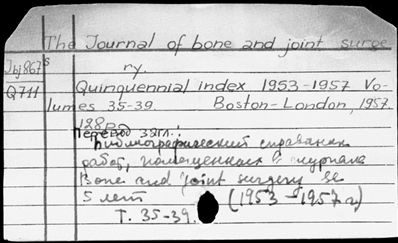 The Journal of bone and joint surge
ry.
Quinquennial index 1953-1957 Vo-
lumes 35-39. Boston-London, 1957.
Q711
128 p.
Перевод загл.:
Библиографический справочник
работ, помещенных в журнале
Bone and joint surgery за
5 лет (1953-1957 г)
Т. 35-39.